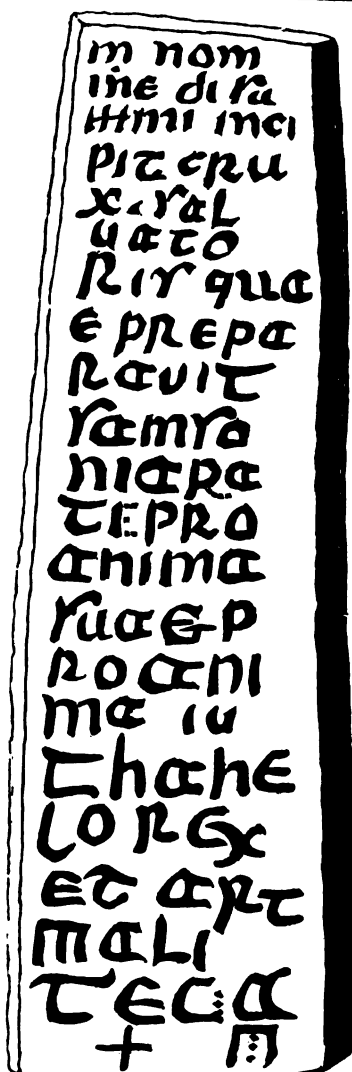 m nom
ine di su
mmi inci
pit cru
x.sal
uato
ris qua
e prepa
rauit
samso
niapa
te pro
anima
sua & p
ro ani
ma iu
thahe
lo rex
et art
mali
tecg
+ m